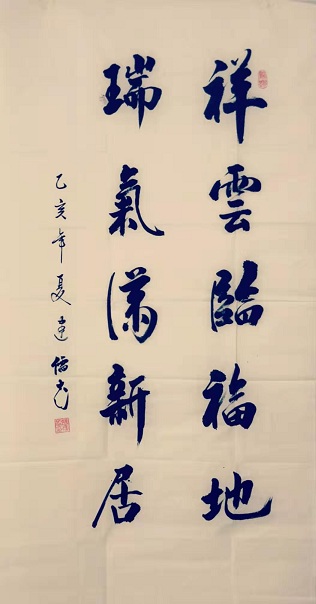 祥雲臨福地
瑞氣滿新居
乙亥年夏